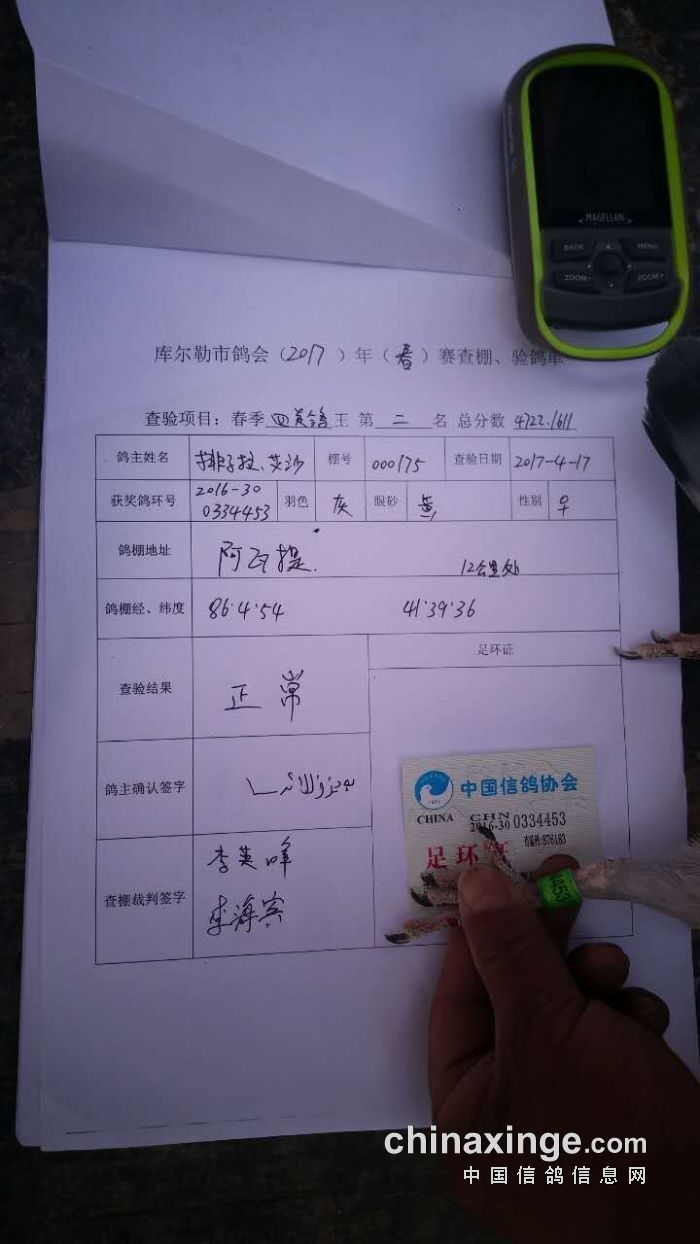 MAGELLAN
BACK MENU
ZOOM- ZOOM+
库尔勒市鸽会（2017）年（春）赛查棚、验鸽单
查验项目：春季 四关鸽王 第 二 名 总分数 4722.1611
鸽主姓名 排孜拉、艾沙 棚号 000175 查验日期 2017-4-17
获奖鸽环号 2016-30 0334453 羽色 灰 眼砂 黄 性别 早
鸽棚地址 阿瓦提. 12公里处
鸽棚经、纬度 86·4'54 41'39'36
足环证
查验结果 正常
鸽主确认签字
查棚裁判签字 李英峰
李海宾
中国信鸽协会
CHINA CHN
2016-30 0334453
足环证
chinaxinge.com
中国信鸽信息网